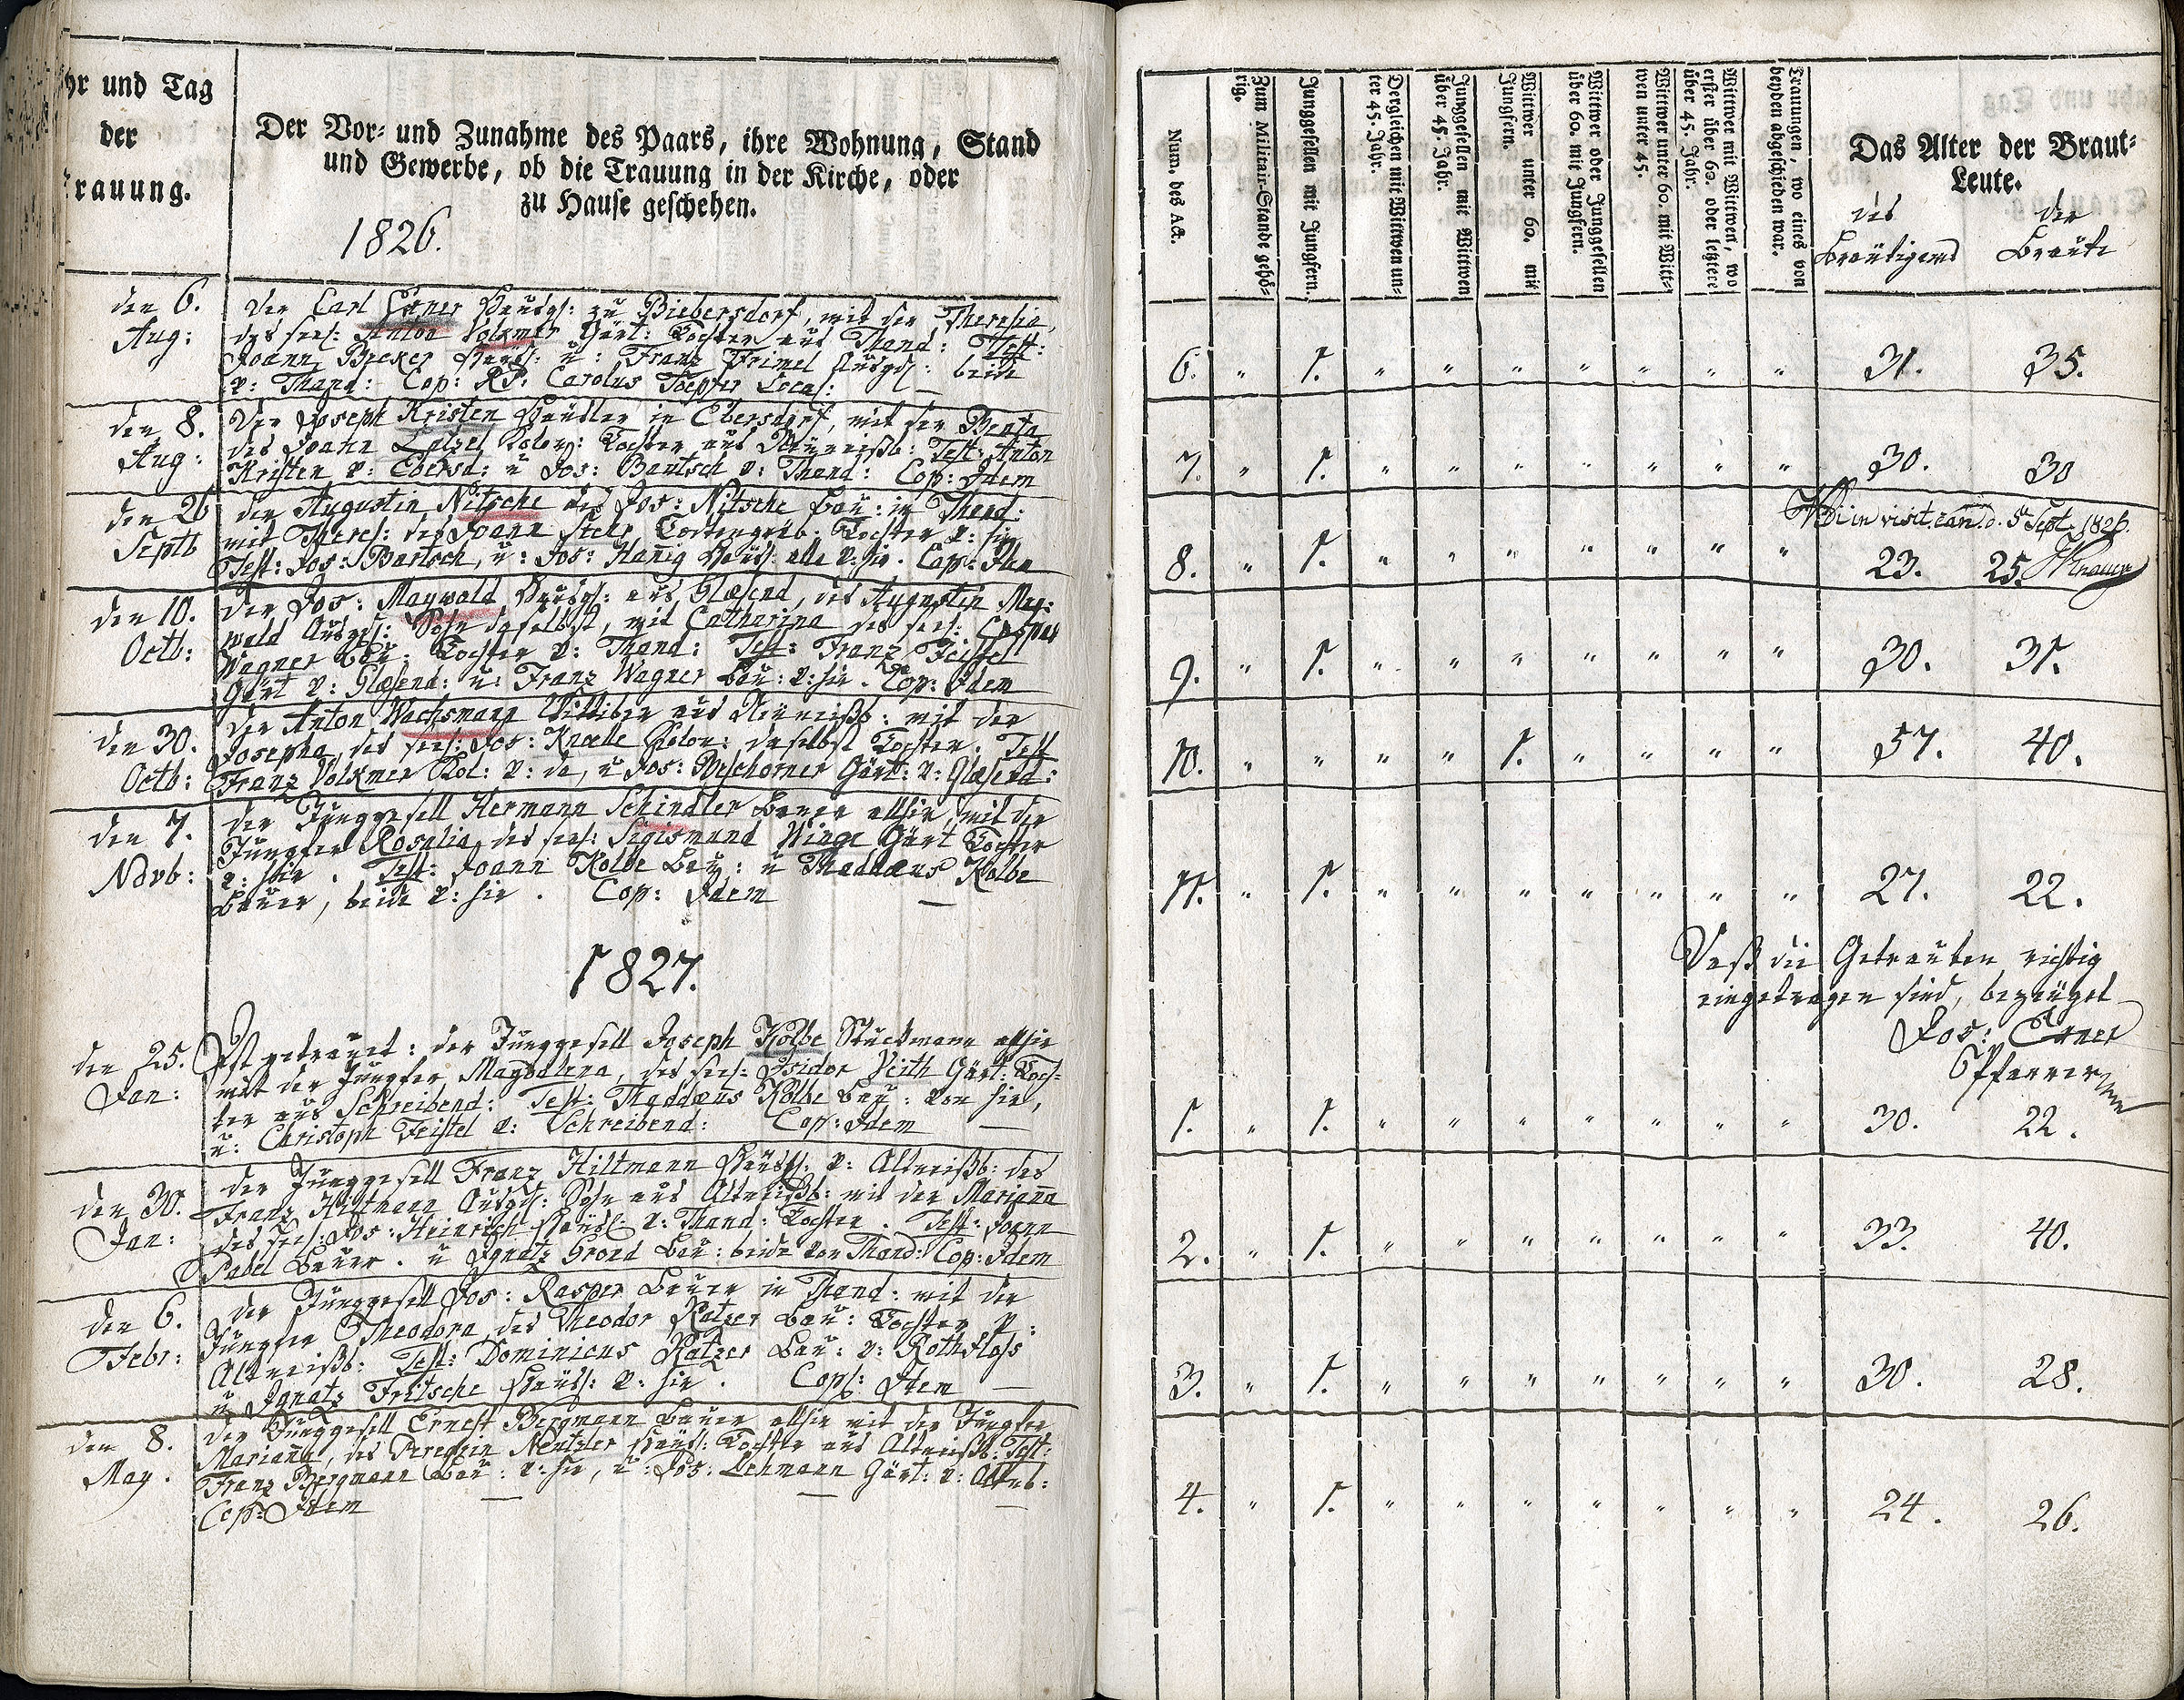 hr und Tag
der
rauung.
Der Vor- und Zunahme des Paars, ihre Wohnung, Stand
und Gewerbe, ob die Trauung in der Kirche, oder
zu Hause geschehen.
1826.
den 6.
Aug:
Der Carl Exner zu Biebersdorf, mit der Theresia,
des seel: Anton Volkmer Gärt: Tochter aus Thand: Test:
Joann u: Franz beide
v: Thand: Cop: RP. Carolus Toepfer Local:
den 8.
Aug:
Der Joseph Kristen Häusler in Ebersdorf, mit der Beata
des Joann Latzel Colon: Tochter aus Neuweißb: Test: Anton
Kristen v: Ebersd: u Jos: Bartsch v: Thand: Cop: Idem
den 26
Septb
der Augustin Nitsche des Jos: Nitsche Bau: in Thand:
mit Theres: des Joann Tochter v: hir
Test: Jos: Bartsch, u: Jos: Hanig Häusl: alle v: hir. Cop: Idem
den 10.
Octb:
Der Jos: Maywald aus Glasend, des Augustin May:
wald Ausged: Sohn daselbst, mit Catharina des seel: Caspar
Wagner Bau: Tochter v: Thand: Test: Franz Feistel
Gärt v: Glasend: u: Franz Wagner Bau: v: hir. Cop: Idem
den 30.
Octb:
Der Anton Wachsmann Wittiber aus Neuweißb: mit der
Josepha, des seel: Jos: Knolle Colon: daselbst Tochter. Test
Franz Volkmer Kol: v: da, u Jos: Beschorner Gärt: v: Glasend:
den 7.
Novb:
der Junggesell Hermann Schindler Bauer allhir, mit der
Jungfer Rosalia, des seel: Sigismund Winge Gärt Tochter
v: hir. Test: Joann Kolbe Bau: u Thaddæus Kolbe
Bauer, beide v: hir. Cop: Idem
1827.
den 25.
Jan:
Ist getrauet: der Junggesell Joseph Kolbe Stuckmann allhir
mit der Jungfer Magdalena, des seel: Isidor Veith Gärt: Toch-
ter aus Schreibend: Test: Thaddæus Kolbe Bau: von hir,
u: Christoph Feistel v: Schreibend: Cop: Idem
den 30.
Jan:
der Junggesell Franz Hiltmann Häusl: v: Altweißb: des
Franz Hiltmann Ausged: Sohn aus Altweißb: mit der Mariana
des seel: Jos: Heinrich Häusl: v: Thand: Tochter. Test: Joann
Pabel Bauer. u Ignatz Bau: beide von Thand: Cop: Idem
den 6.
Febr:
der Junggesell Jos: Rasper Bauer in Thand: mit der
Jungfer Theodora, des Theodor Ratzer Bau: Tochter v:
Altweißb: Test: Dominicus Ratzer Bau: v: Rothfloss
u Ignatz Fritsche Häusl: v: hir. Cop: Idem
den 8.
May.
der Junggesell Ernest Bergmann Bauer allhir mit der Jungfer
Mariana, des Peregrin Nentzler Häusl: Tochter aus Altweißb: Test:
Franz Bergmann Bau: v: hir, u: Jos: Lehmann Gärt: v:
Cop: Idem
Num. des Act.
Zum Militair-Stande gehö-
rig.
Junggesellen mit Jungfern.
Dergleichen mit Wittwen un-
ter 45. Jahr.
Junggesellen mit Wittwen
über 45. Jahr.
Wittwer unter 60. mit
Jungfern.
Wittwer oder Junggesellen
über 60. mit Jungfern.
Wittwer unter 60. mit Witt-
wen unter 45.
Wittwer mit Wittwen, wo
erster über 60. oder letztere
über 45. Jahr.
Trauungen, wo eines von
beyden abgeschieden war.
Das Alter der Braut-
Leute.
des der
Bräutigams Braut
6. " 1. " " " " " " " 31. 35.
7. " 1. " " " " " " " 30. 30
Vidi in visit. can. d. 5 Sept. 1826.
8. " 1. " " " " " " " 23. 25
9. " 1. " " " " " " " 30. 31.
10. " " " " 1. " " " " 57. 40.
11. " 1. " " " " " " " 27. 22.
Daß die Getrauten richtig
eingetragen sind, bezeuget
Jos: Exner
Pfarrer
1. " 1. " " " " " " " 30. 22.
2. " 1. " " " " " " " 33. 40.
3. " 1. " " " " " " " 30. 28.
4. " 1. " " " " " " " 24. 26.